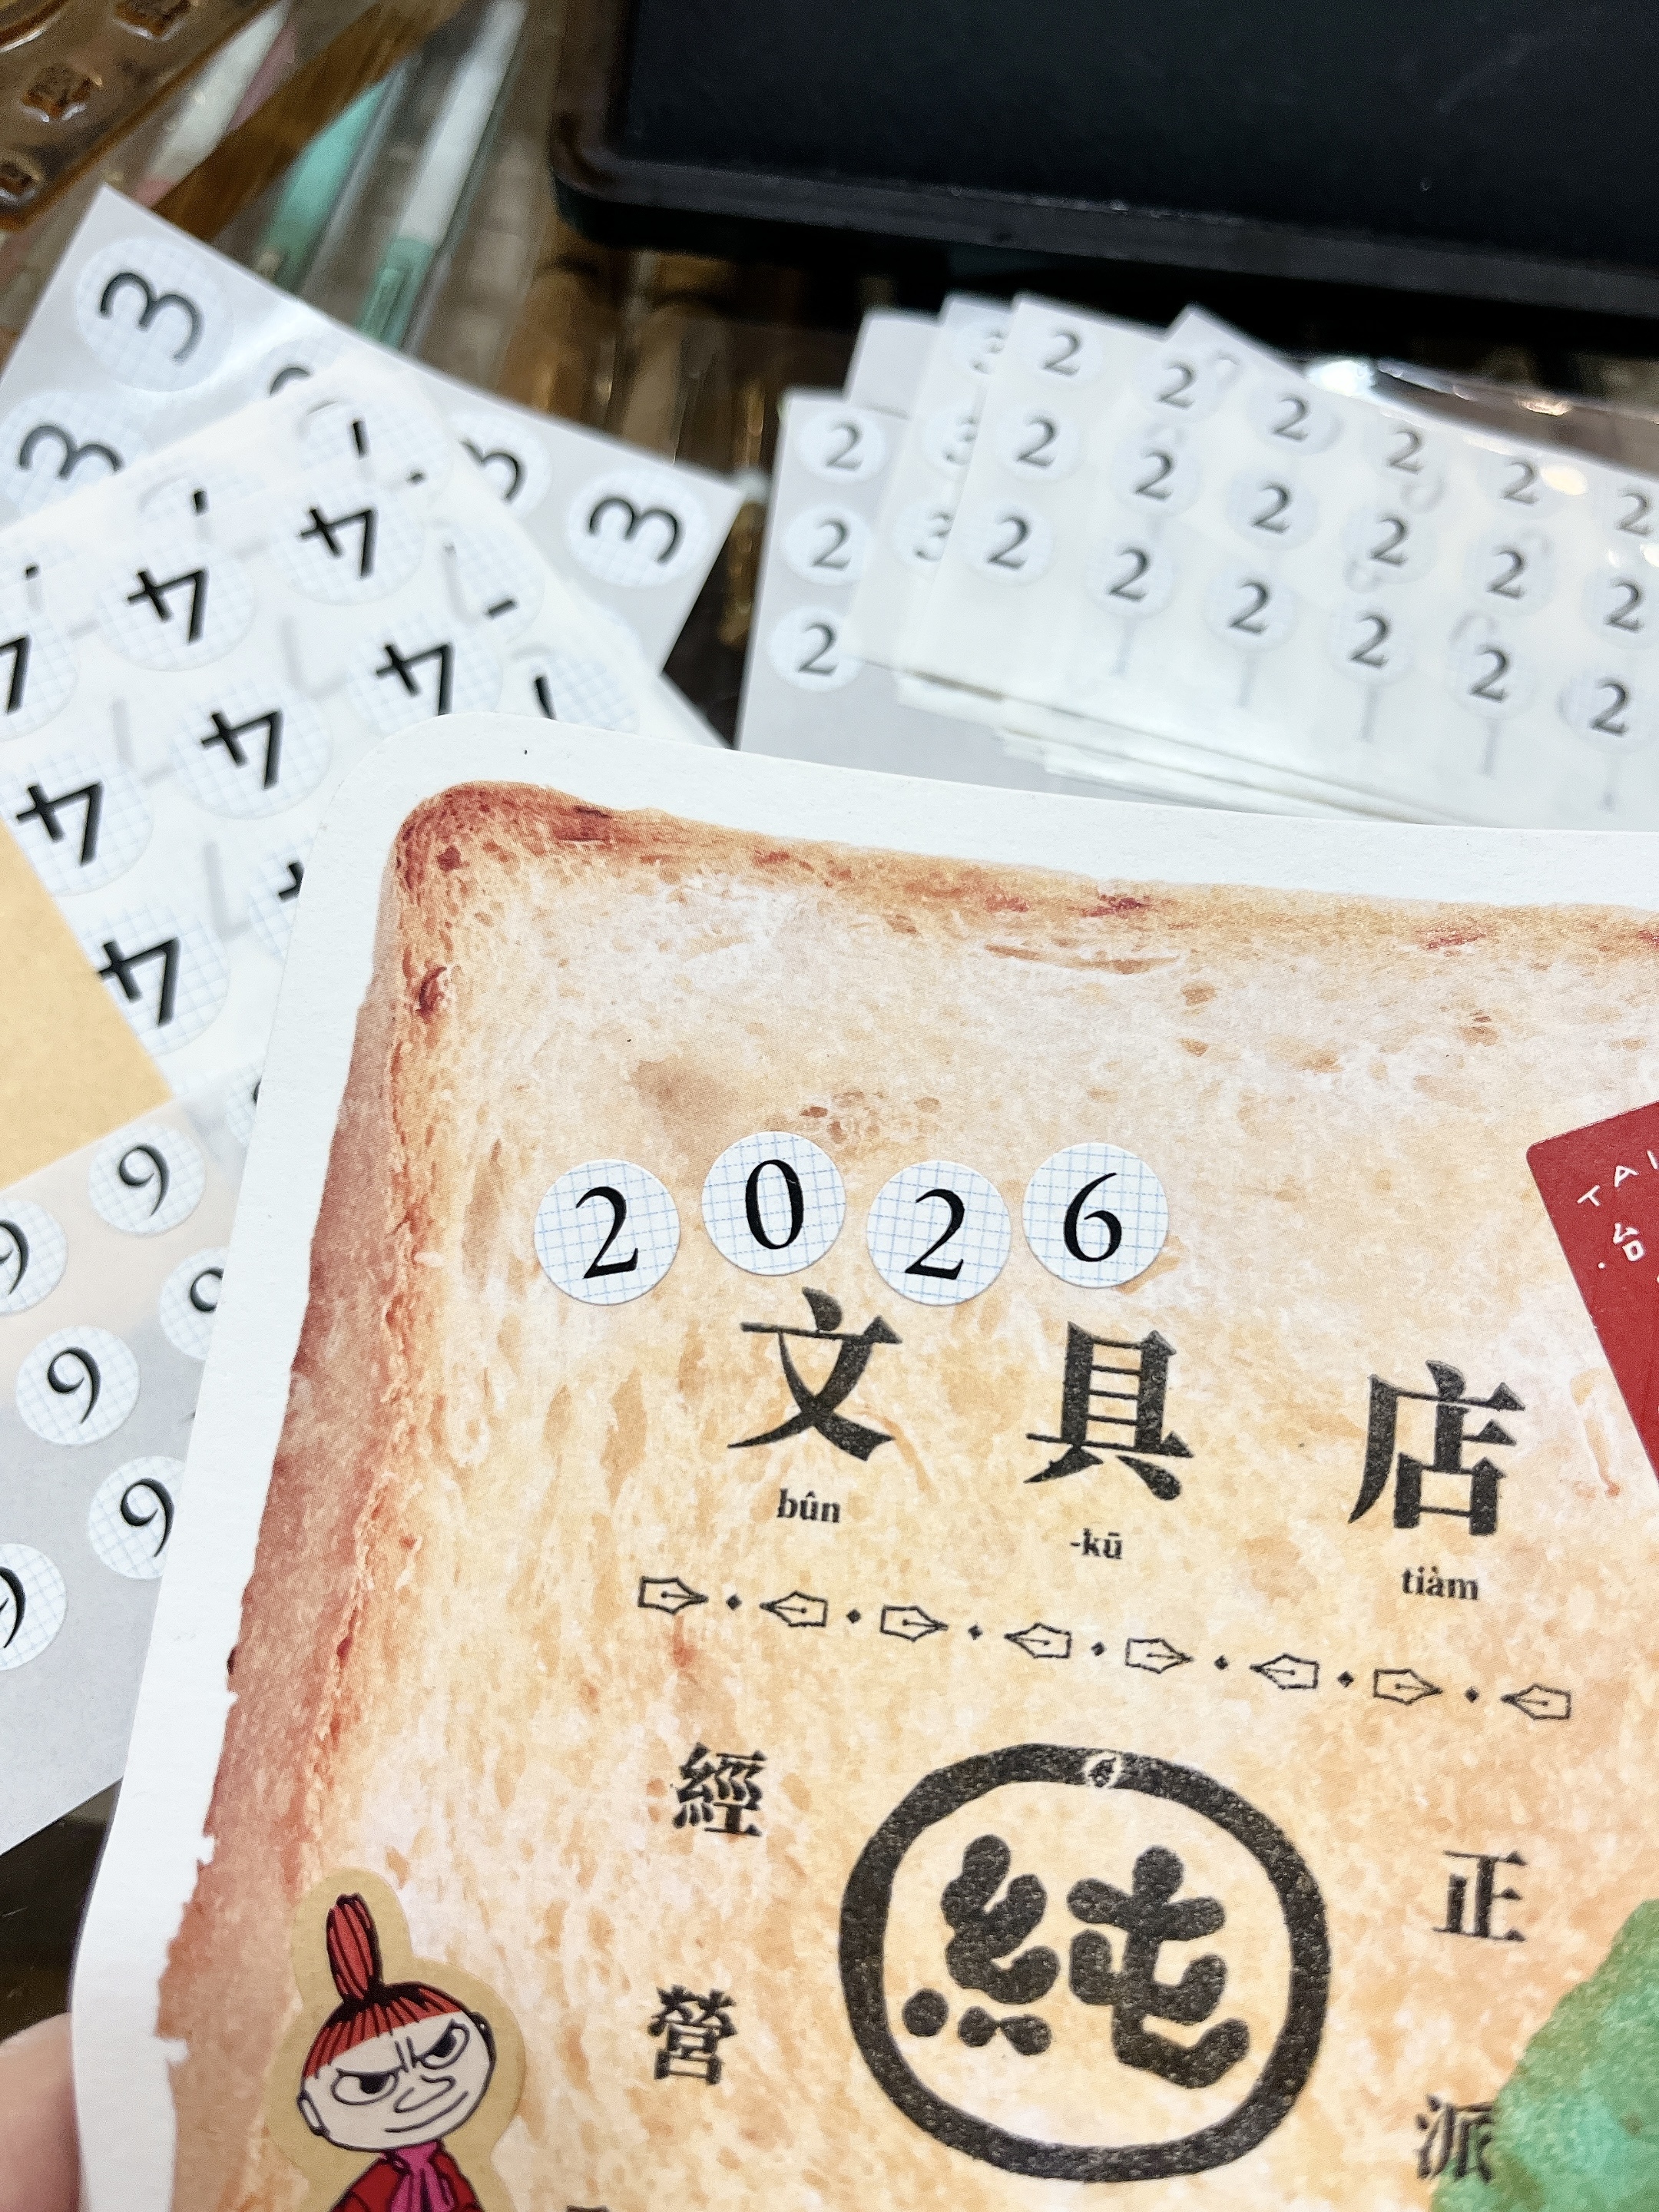 3
3
3
3
4
4
4
4
4
4
9
9
9
9
9
2 2 2 2 2 2
2 2 2 2 2 2 2
2 2 2 2 2 2 2
2
2026
文具店
bûn -kū tiàm
TAI
台
經營
純
正派